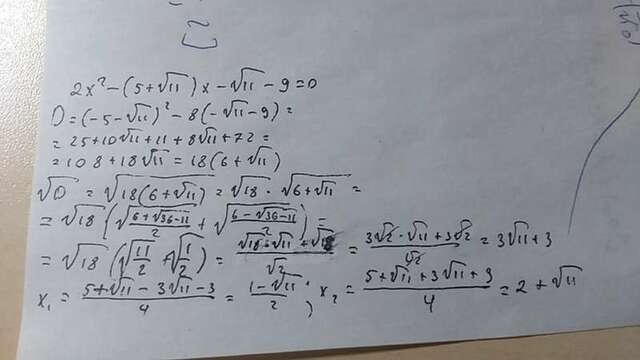 2x² - (5+√11)x - √11 - 9 = 0
D = (-5-√11)² - 8(-√11-9) =
= 25+10√11+11+8√11+72 =
= 108+18√11 = 18(6+√11)
√D = √18(6+√11) = √18 · √6+√11 =
= √18 (√(6+√36-11)/2 + √(6-√36-11)/2) =
= √18 (√11/2 + √1/2) = (√18·√11+√18)/√2 = (3√2·√11+3√2)/√2 = 3√11+3
x₁ = (5+√11-3√11-3)/4 = (1-√11)/2 ; x₂ = (5+√11+3√11+3)/4 = 2+√11